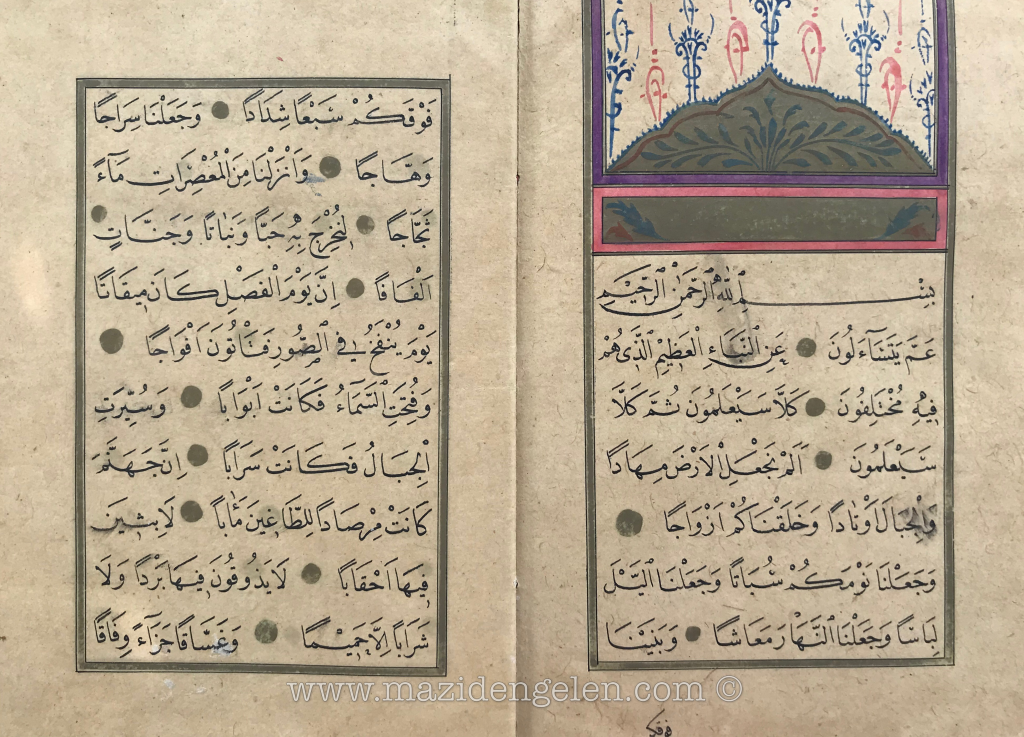 بِسْمِ اللّٰهِ الرَّحْمٰنِ الرَّحِيمِ
عَمَّ يَتَسَآءَلُونَ عَنِ النَّبَاءِ الْعَظِيمِ الَّذِى هُمْ
فِيهِ مُخْتَلِفُونَ كَلَّا سَيَعْلَمُونَ ثُمَّ كَلَّا
سَيَعْلَمُونَ اَلَمْ نَجْعَلِ الْاَرْضَ مِهَادًا
وَالْجِبَالَ اَوْتَادًا وَخَلَقْنَاكُمْ اَزْوَاجًا
وَجَعَلْنَا نَوْمَكُمْ سُبَاتًا وَجَعَلْنَا الَّيْلَ
لِبَاسًا وَجَعَلْنَا النَّهَارَ مَعَاشًا وَبَنَيْنَا
فوقكم
فَوْقَكُمْ سَبْعًا شِدَادًا وَجَعَلْنَا سِرَاجًا
وَهَّاجًا وَاَنْزَلْنَا مِنَ الْمُعْصِرَاتِ مَآءً
ثَجَّاجًا لِنُخْرِجَ بِهِ حَبًّا وَنَبَاتًا وَجَنَّاتٍ
اَلْفَافًا اِنَّ يَوْمَ الْفَصْلِ كَانَ مِيقَاتًا
يَوْمَ يُنْفَخُ فِى الصُّورِ فَتَاْتُونَ اَفْوَاجًا
وَفُتِحَتِ السَّمَآءُ فَكَانَتْ اَبْوَابًا وَسُيِّرَتِ
الْجِبَالُ فَكَانَتْ سَرَابًا اِنَّ جَهَنَّمَ
كَانَتْ مِرْصَادًا لِلطَّاغِينَ مَاٰبًا لَابِثِينَ
فِيهَا اَحْقَابًا لَا يَذُوقُونَ فِيهَا بَرْدًا وَلَا
شَرَابًا اِلَّا حَمِيمًا وَغَسَّاقًا جَزَآءً وِفَاقًا
www.mazidengelen.com ©